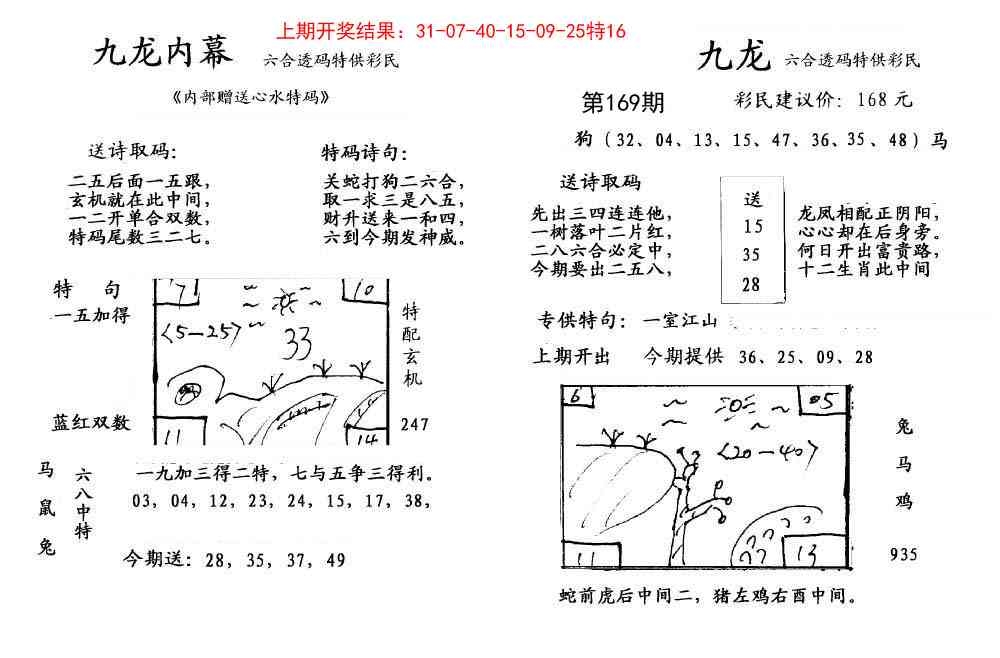 上期开奖结果：31-07-40-15-09-25特16
九龙内幕 六合透码特供彩民
《内部赠送心水特码》
送诗取码：
二五后面一五跟，
玄机就在此中间，
一二开单合双数，
特码尾数三二七。
特码诗句：
关蛇打狗二六合，
取一求三是八五，
财升送来一和四，
六到今期发神威。
特 句
一五加得
蓝红双数
10
〈5-25〉
33
11
14
特配玄机
247
马
鼠
兔
六八中特
一九加三得二特，七与五争三得利。
03，04，12，23，24，15，17，38，
今期送：28，35，37，49
九龙 六合透码特供彩民
第169期 彩民建议价：168元
狗（32、04、13、15、47、36、35、48）马
送诗取码
先出三四连连他，
一树落叶二片红，
二八六合必定中，
今期要出二五八，
送
15
35
28
龙凤相配正阴阳，
心心却在后身旁。
何日开出富贵路，
十二生肖此中间
专供特句：一室江山
上期开出 今期提供 36、25、09、28
6
05
〈20-40〉
11
13
兔
马
鸡
935
蛇前虎后中间二，猪左鸡右酉中间。